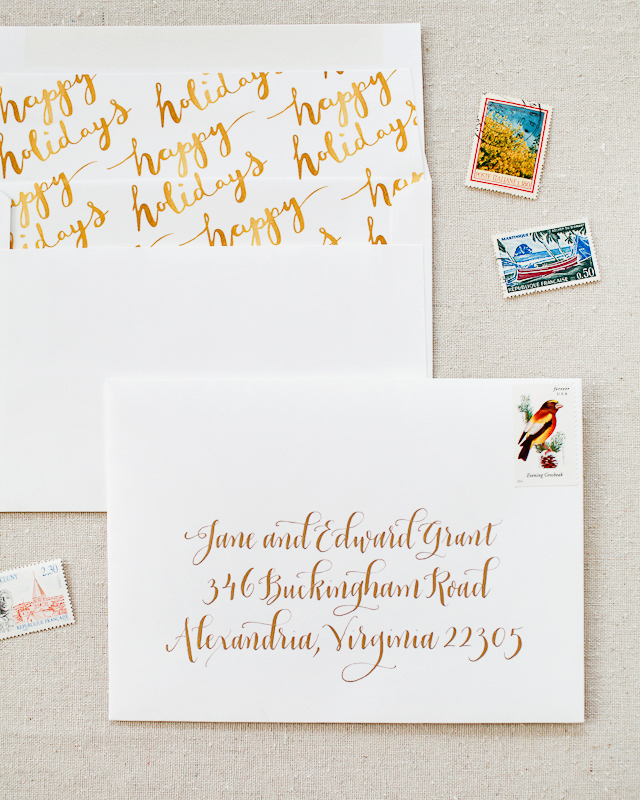 happy holidays happy
holidays happy holidays
happy holidays happy
holidays happy
POSTE ITALIANE L.180
MARTINIQUE
0.50
RÉPUBLIQUE FRANÇAISE
forever
USA
Evening Grosbeak
Jane and Edward Grant
346 Buckingham Road
Alexandria, Virginia 22305
CLUNY 2.30
REPUBLIQUE FRANÇAISE